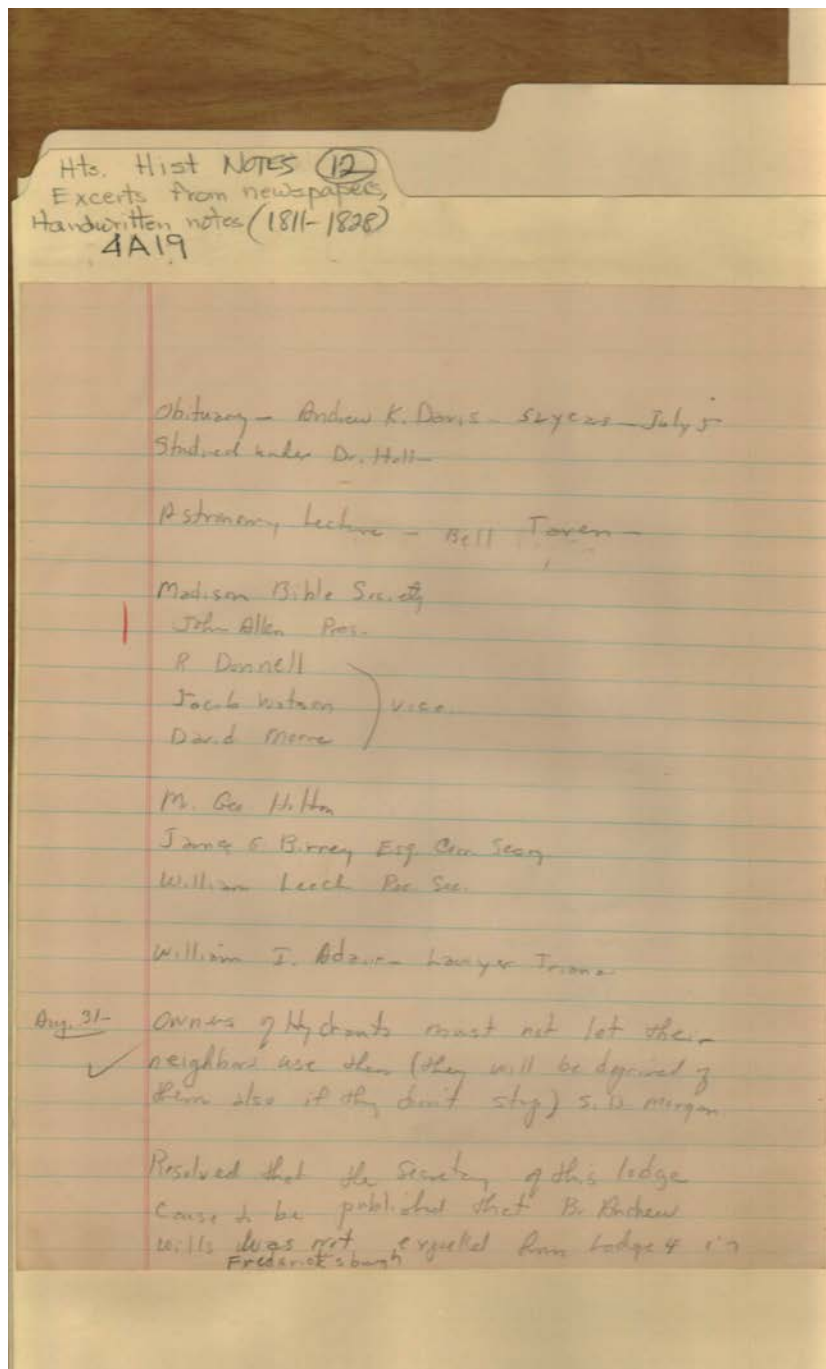 Hts. Hist NOTES (12)
Excerts from newspapers,
Handwritten notes (1811-1828)
4A19
Obituary - Andrew K. Davis - 52 years - July 5
Studied under Dr. Holl-
Astronomy Lecture - Bell Taven -
Madison Bible Society
John Allen Pres.
R Donnell
Jacob Watson
vice.
David Moore
M. Geo Hilton
James G Birney Esq. Secy.
William Leech Rec Sec.
William I. Adair - Lawyer Triana
Aug. 31-
Owners of Hydrants must not let their
neighbors use them (they will be deprived of
them also if they don't stop) S. D. Morgan
Resolved that the Secretary of this lodge
Cause to be published that B. Andrew
Wills was not expelled from Lodge 4 in
Fredericksburgh